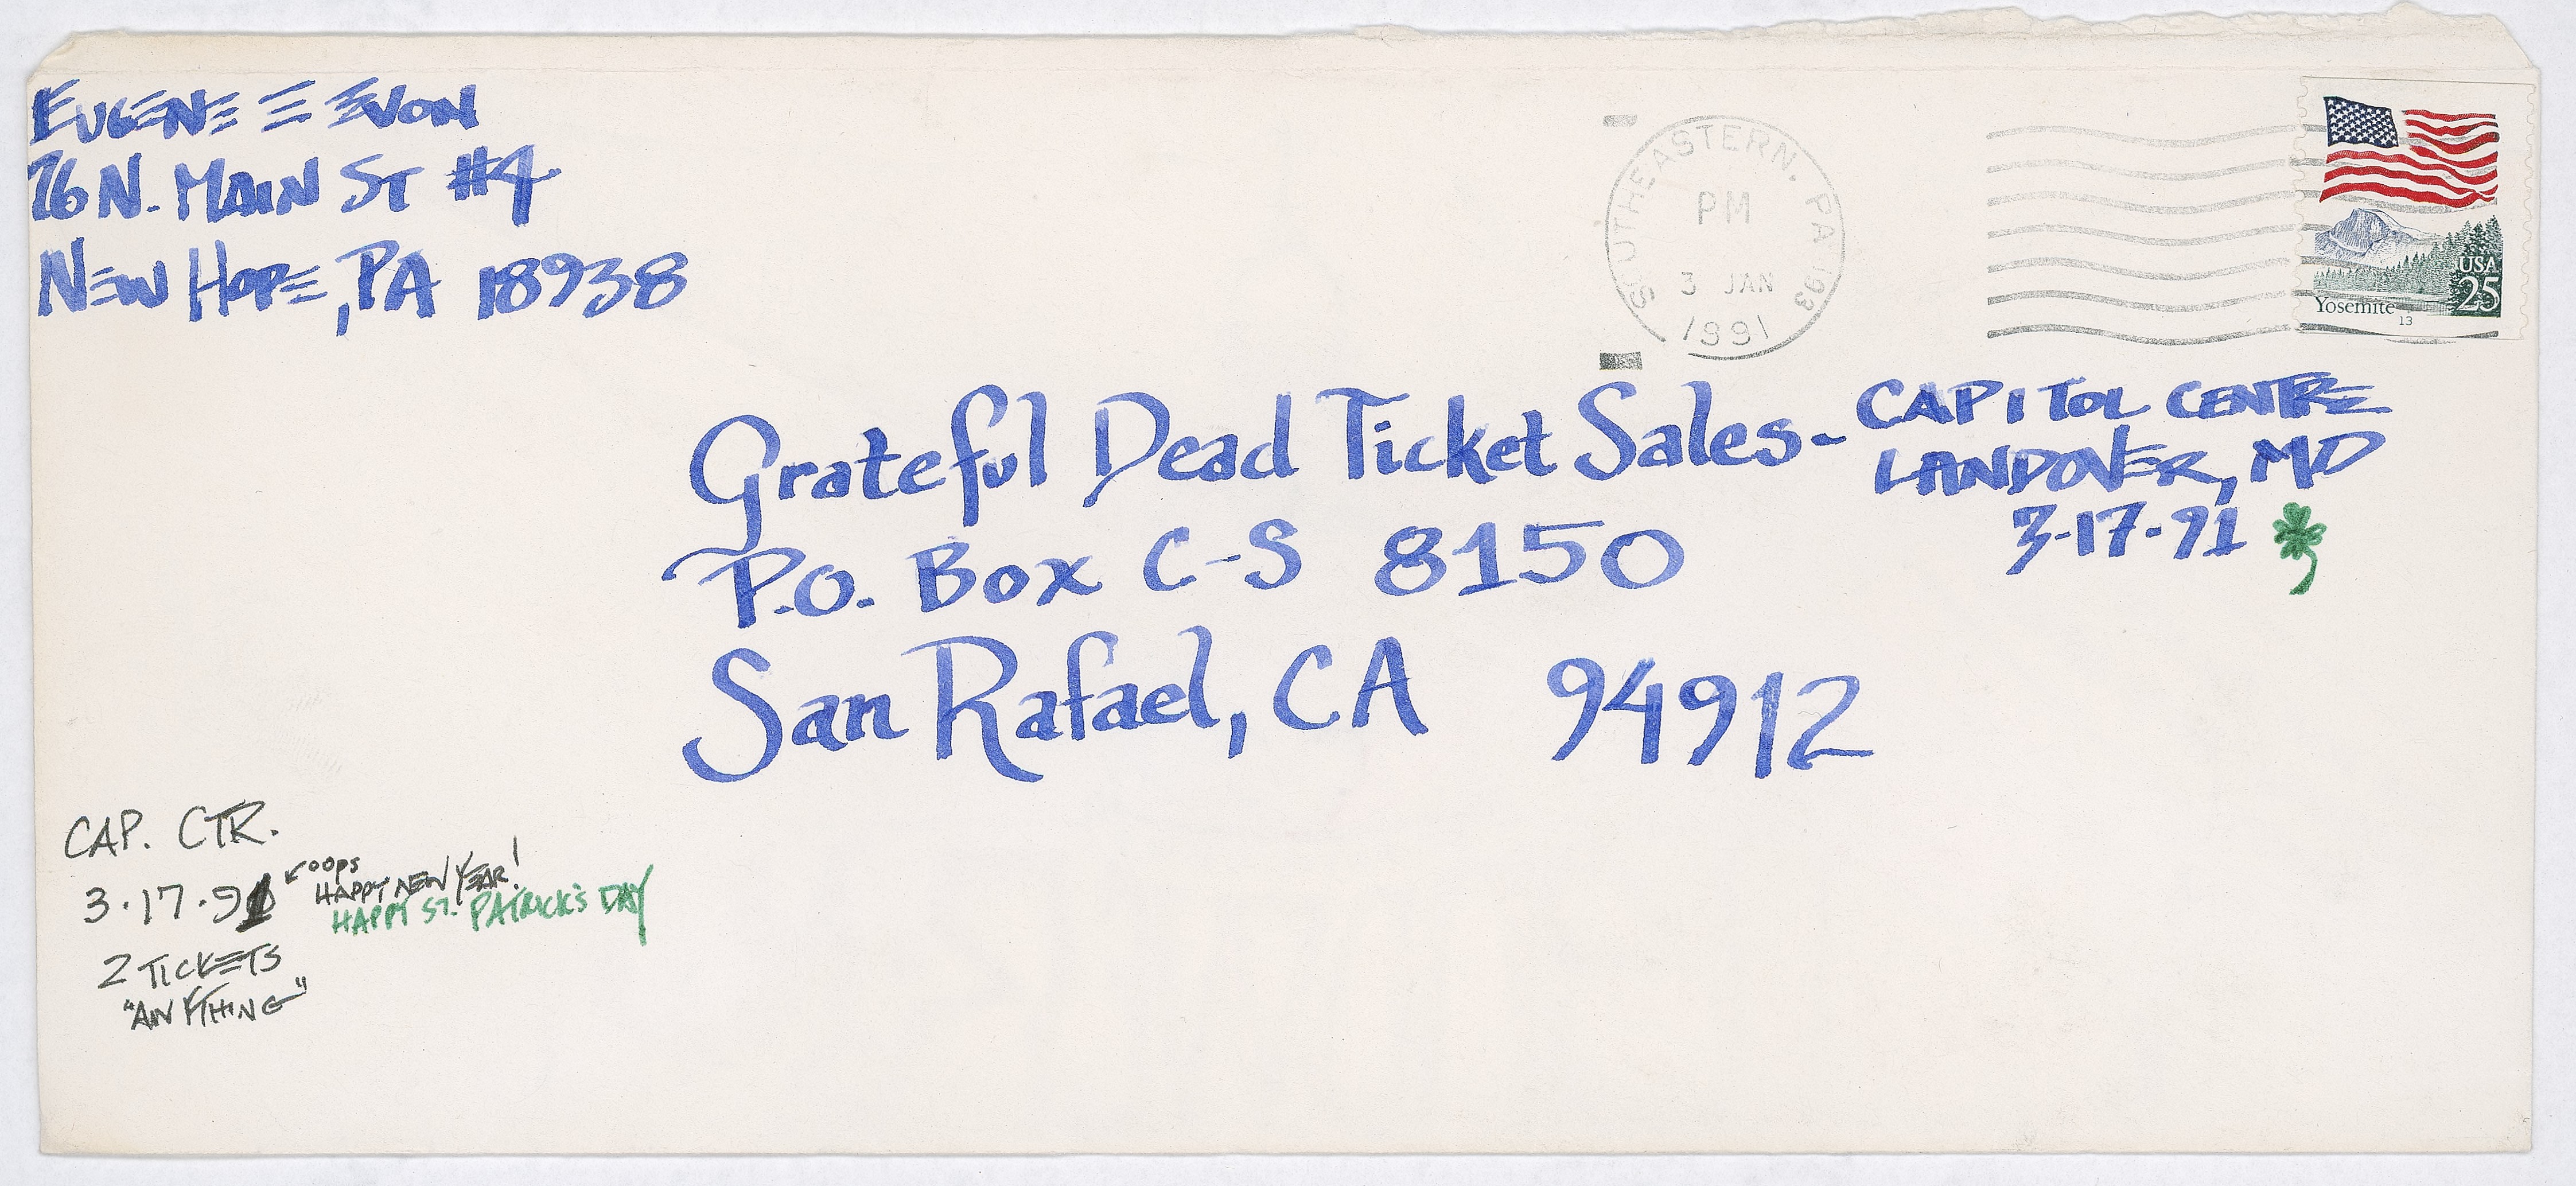 EUGENE E EVON
76 N. MAIN ST #4
NEW HOPE, PA 18938
SOUTHEASTERN, PA 193
PM
3 JAN
1991
USA
25
Yosemite
13
Grateful Dead Ticket Sales-
P.O. Box C-S 8150
San Rafael, CA 94912
CAPITOL CENTRE
LANDOVER, MD
3-17-91
CAP. CTR.
3.17.91
OOPS
HAPPY NEW YEAR!
HAPPY ST. PATRICK'S DAY
2 TICKETS
"ANYTHING"